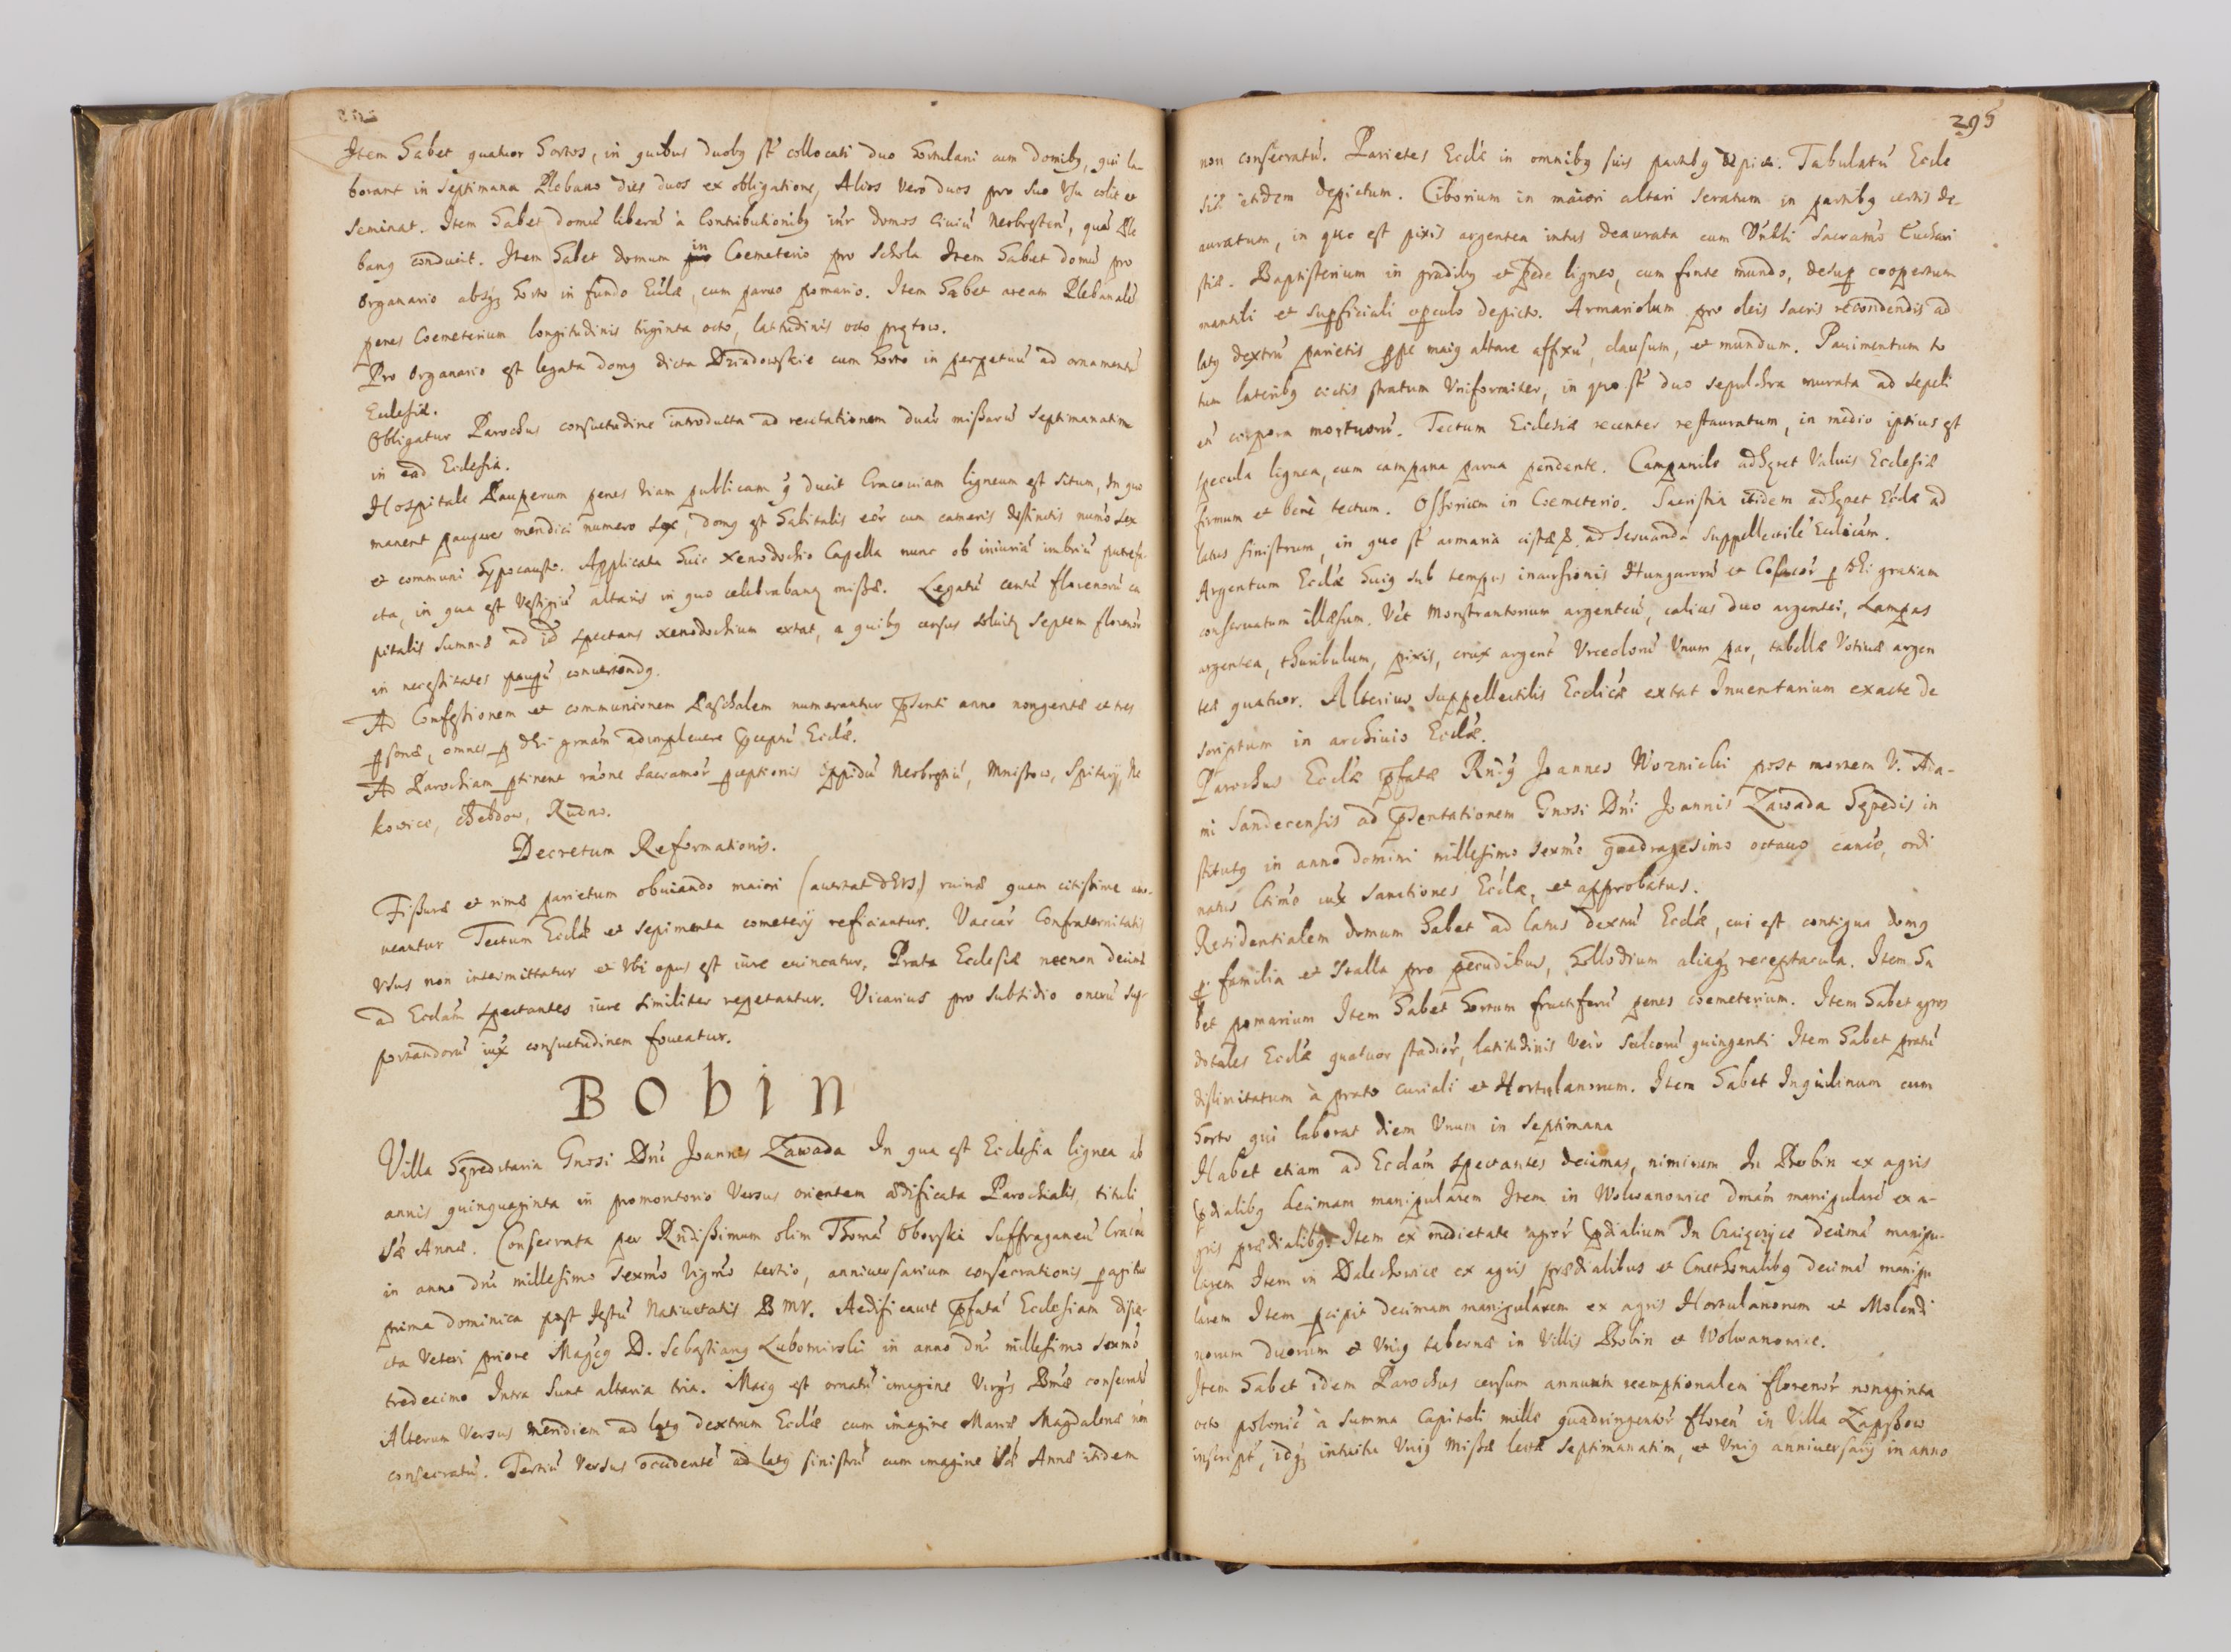 Item habet quatuor hortos, in quibus duobq st collocati duo hortulani cum domibq, qui la-
borant in septimana Plebano dies duos ex obligatione, Alios vero duos pro suo Vsu colit et
seminat. Item habet domũ liberã à Contributionibq intr domos Ciuiũ Nerbrgsteñ, quã Ple
banq conducit. Item habet domum in Coemeterio pro Schola Item habet domũ pro
Organario absqz horto in fundo Eccłæ, cum paruo pomario. Item habet aream Plebanalẽ
penes Coemeterium longitudinis triginta octo, latitudinis octo prętow.
Pro Organario est legata domq dicta Dziadowskie cum horto in perpetuũ ad ornamentũ
Ecclesiæ.
Obligatur Parochus consuetudine introducta ad recitationem duar missarũ septimanatim
in ead Ecclesia.
Hospitale Pauperum penes viam publicam q ducit Cracouiam ligneum est situm, In quo
manent pauperes mendici numero sex, domq est habitalis eor cum cameris distinctis numo sex
et communi hypocausto. Applicata huic Xenodochio Capella nunc ob iniuriã imbriũ putrefa
cta, in qua est Vestigiũ altaris in quo celebrabanq missæ. Legatũ centũ florenorũ ca
pitalis summæ ad id spectans xenodochium extat, a quibq census soluitq septem florenor
in necessitates paupũ conuertendq.
Ad Confessionem et communionem Paschalem numerantur psenti anno nongentæ et tres
psonæ, omnes p dei grãam adimpleuere pceptũ Eccłæ.
Ad Parochiam ptinent raõne sacramor pceptionis oppidũ Nerbrgniũ, Mnissow, Spitary, Ne
kowice, Hebdow, Rudno.
Decretum Reformationis.
Fissuræ et rimæ parietum obuiando maiori (auertat DEVS,) ruinæ quam citissime amo-
ueantur Tectum Eccłæ et sepimenta cometerÿ reficiantur. Vaccar Confraternitatis
Vsus non intermittatur et Vbi opus est iure euincatur, Prata Ecclesiæ necnon decimæ
ad Eccłam spectantes iure similiter repetantur. Vicarius pro subsidio onerũ sup-
portandorũ iux consuetudinem foueatur.
BObIN
Villa hæreditaria Gnosi Dñi Joannis Zawada In qua est Ecclesia lignea ab
annis quinquaginta in promontorio Versus orientem ædificata Parochialis, tituli
Sæ Annæ. Consecrata per Rndissimum olim Thomã Oborski Suffraganeũ Cracou
in anno dñi millesimo sexmo vigmo tertio, anniuersarium consecrationis pagitur
prima dominica post festũ Natiuitatis B MV. Aedificauit pfatã Ecclesiam disie-
cta Veteri priore Magcq D. Sebastianq Lubomirski in anno dñi millesimo sexmo
tredecimo Intra sunt altaria tria. Maiq est ornatũ imagine Virgis Bmæ consecratũ
Alterum Versus meridiem ad latq dextrum Eccłæ cum imagine Mariæ Magdalenæ nõn
consecratũ. Tertiũ Versus occidentẽ ad latq sinistrũ cum imagine Sæ Annæ itidem
295
non consecratũ. Parietes Eccłæ in omnibq suis partibq depicti. Tabulatũ Eccle
siæ itidem depictum. Ciborium in maiori altari seratum in partibq certis de-
auratum, in quo est pixis argentea intus deaurata cum Vnbli Sacramo Euchari
stiæ. Baptisterium in gradibq et pede ligneo, cum fonte mundo, desup coopertum
mantili et supficiali operculo depicto. Armariolum pro oleis sacris recondendis ad
latq dextrũ parietis ppe maiq altare affixũ, clausum, et mundum. Pauimentum to
tum lateribq coctis stratum Vniformiter, in quo st duo sepulchra murata ad sepeli
en corpora mortuorũ. Tectum Ecclesiæ recenter restauratum, in medio ipsius est
specula lignea, cum campana parua pendente. Campanile adhæret Valuis Ecclesiæ
firmum et benè tectum. Ossorium in Coemeterio. Sacristia itidem adhæret Eccłæ ad
latus sinistrum, in quo st armaria ad seruandã Suppellectilẽ Eccłicam.
Argentum Eccłæ huiq sub tempus incursionis Hungarorũ et Cosacor p Dei gratiam
conseruatum illæsum. Vět Monstrantorium argenteũ, calices duo argentei, Lampas
argentea, thuribulum, pixis, crux argent Vrceolorũ Vnum par, tabellæ Votiuæ argen
teæ quatuor. Alterius suppellectilis Eccłicæ extat Inuentarium exacte de
scriptum in archiuio Eccłæ.
Parochus Eccłæ pfatæ Rndq Joannes Woznicki post mortem V. Ada-
mi Sandecensis ad psentationem Gnosi Dñi Joannis Zawada hæredis in
stitutq in anno domini millesimo sexmo quadragesimo octauo canõe, ordi
natus ltimõ iux sanctiones Eccłæ, et approbatus.
Residentialem domum habet ad latus dextrũ Eccłæ, cui est contigua domq
p familia et stalla pro pecudibus, hollodium aliaqz receptacula. Item ha
bet pomarium Item habet hortum fructiferũ penes coemeterium. Item habet agros
dotales Eccłæ quatuor stadior, latitudinis Verò sulcorũ quingenti Item habet pratũ
dislimitatum à prato curiali et Hortulanorum. Item habet Inquilinum cum
horto qui laborat diem Vnum in septimana
Habet etiam ad Eccłam spectantes decimas, nimirum In Bobin ex agris
pdialibq decimam manipularem Item in Wolwanowice dmam manipularẽ ex a-
gris prædialibq. Item ex medietate agror pdialium In decimã manipu-
larem Item in Dalechowice ex agris prædialibus et Cmethonalibq decimã manipu
larem Item pcipit decimam manipularem ex agris Hortulanorum et Molendi
norum duorum et Vniq tabernæ in Villis Bobin et Wolwanowice.
Item habet idem Parochus censum annuum reemptionalem florenor nonaginta
octo polonic à summa capitali mille quadringentor floreñ in Villa Zapsbow
inscript, idqz intuitu Vniq Missæ lectæ septimanatim, et Vniq anniuersarÿ in anno